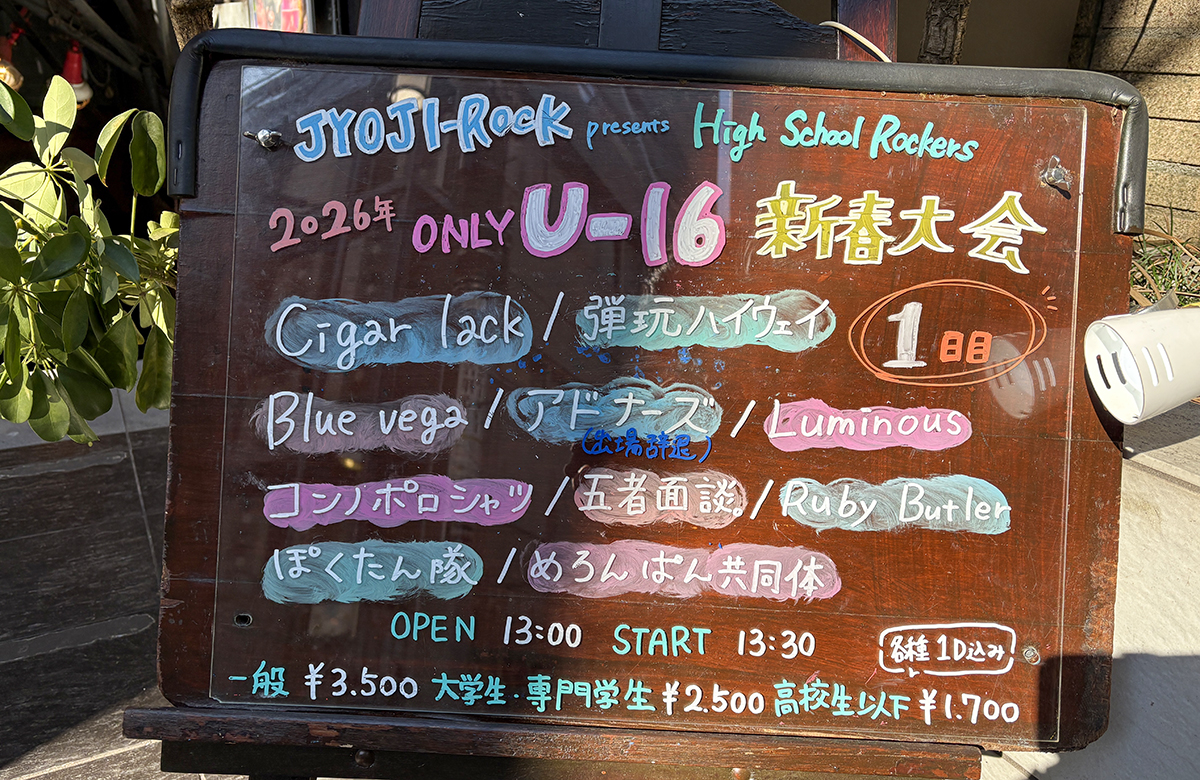 JYOJI-Rock presents High School Rockers
2026年 ONLY U-16 新春大会
Cigar lack / 弾玩ハイウェイ
1日目
Blue vega / アドナーズ / Luminous
(出場辞退)
コンノポロシャツ / 五者面談。/ Ruby Butler
ぽくたん隊 / めろんぱん共同体
OPEN 13:00 START 13:30
各種1D込み
一般 ¥3.500 大学生・専門学生 ¥2.500 高校生以下 ¥1.700